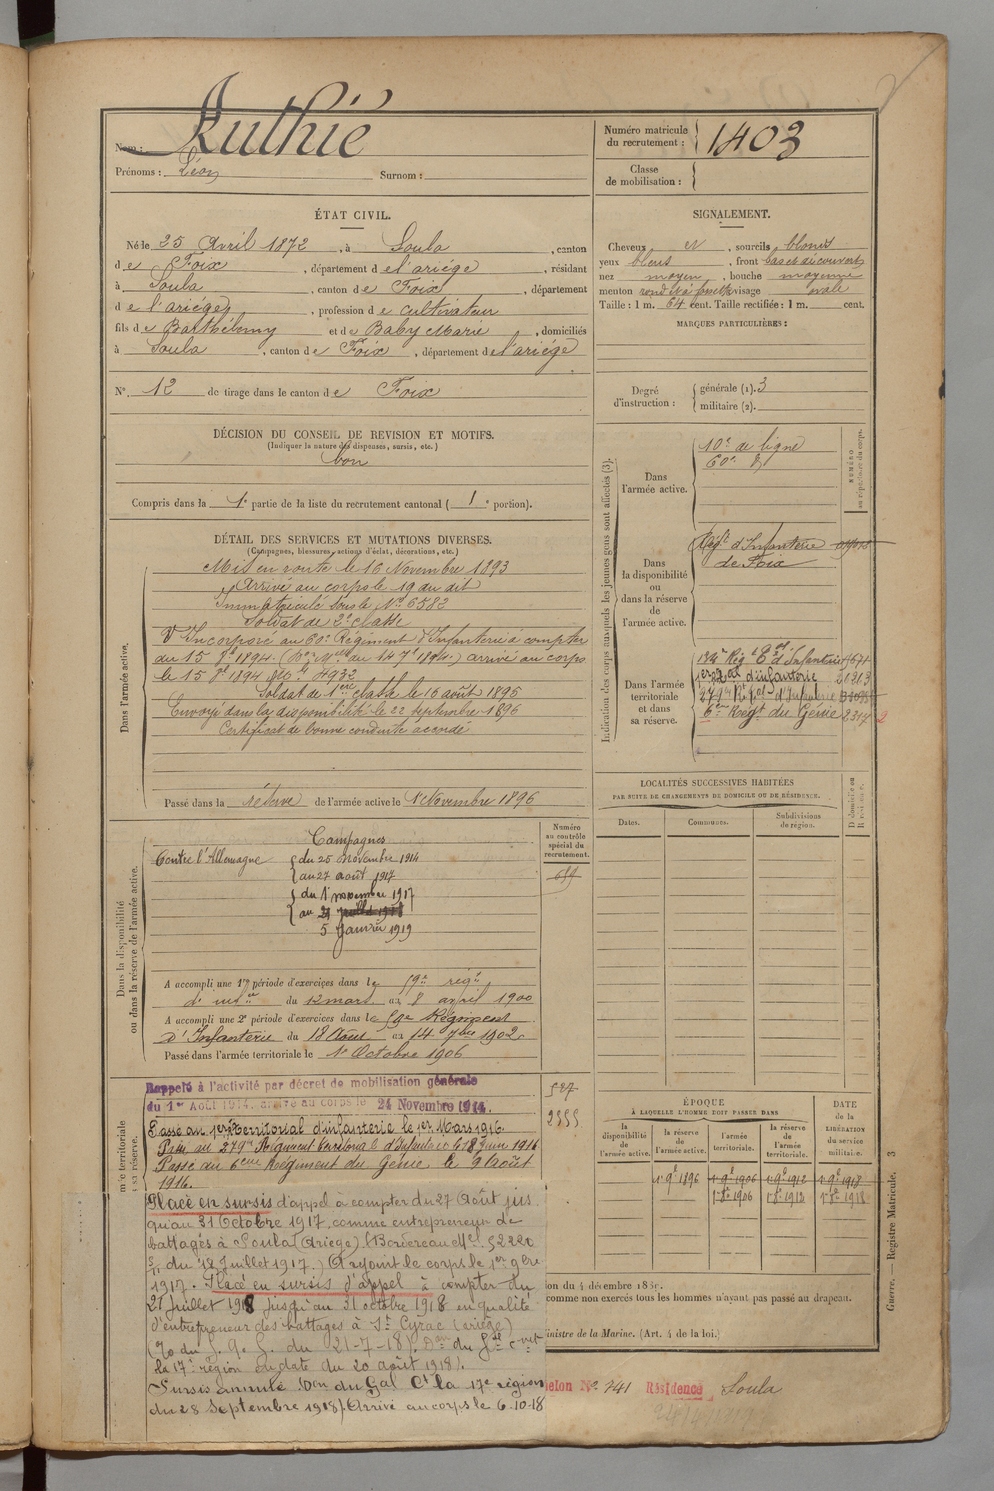 Nom : Ruthié
Prénoms : Léon Surnom :
Numéro matricule du recrutement : 1403
Classe de mobilisation :
ÉTAT CIVIL.
Né le 25 Avril 1872, à Soula, canton
de Foix, département de l'ariége, résidant
à Soula, canton de Foix, département
de l'ariége, profession de cultivateur
fils de Barthélemy et de Baby Marie, domiciliés
à Soula, canton de Foix, département de l'ariége
N° 12 de tirage dans le canton de Foix
DÉCISION DU CONSEIL DE REVISION ET MOTIFS.
(Indiquer la nature des dispenses, sursis, etc.)
bon
Compris dans la 1e partie de la liste du recrutement cantonal (1e portion).
SIGNALEMENT.
Cheveux et, sourcils blonds
yeux bleus, front bas et découvert
nez moyen, bouche moyenne
menton rond et à fossette visage ovale
Taille : 1 m. 64 cent. Taille rectifiée : 1 m. cent.
MARQUES PARTICULIÈRES :
Degré d'instruction : générale (1). 3
militaire (2).
DÉTAIL DES SERVICES ET MUTATIONS DIVERSES.
(Campagnes, blessures, actions d'éclat, décorations, etc.)
Dans l'armée active.
Mis en route le 16 Novembre 1893
Arrivé au corps le 19 du dit
Immatriculé sous le N° 6582
Soldat de 2e classe
Incorporé au 60e Régiment d'Infanterie à compter
du 15 8bre 1894. arrivé au corps
le 15 8bre 1894 N° 4932
Soldat de 1ère classe le 16 août 1895
Envoyé dans la disponibilité le 22 septembre 1896
Certificat de bonne conduite accordé
Passé dans la réserve de l'armée active le 1er Novembre 1896
Indication des corps auxquels les jeunes gens sont affectés (3).
NUMÉRO au répertoire du corps.
Dans l'armée active.
10e de ligne
60e
Dans la disponibilité ou dans la réserve de l'armée active.
Régt d'Infanterie
de Foix
Dans l'armée territoriale et dans sa réserve.
134e Rég t d'Infanterie 1671
1er d'infanterie 21213
279e d'Infanterie
6e Régt du Génie 2317
LOCALITÉS SUCCESSIVES HABITÉES
PAR SUITE DE CHANGEMENTS DE DOMICILE OU DE RÉSIDENCE.
Dates. Communes. Subdivisions de région. D domicile ou R résidence.
Dans la disponibilité ou dans la réserve de l'armée active.
Numéro au contrôle spécial du recrutement.
Campagnes
Contre l'Allemagne du 25 novembre 1914
au 27 août 1917
du 1er novembre 1917
au 21 juillet 1918
5 Janvier 1919
A accompli une 1re période d'exercices dans le 59e régt
d'infie du 12 mars au 8 avril 1900
A accompli une 2e période d'exercices dans le 59e Régiment
d'Infanterie du 18 Août au 14 7bre 1902
Passé dans l'armée territoriale le 1er Octobre 1906
527
2555
Rappelé à l'activité par décret de mobilisation générale
du 1er Août 1914. arrivé au corps le 24 Novembre 1914.
Passé au 1er territorial d'infanterie le 1er Mars 1916.
Passé au 279e Régiment territorial d'Infanterie le 18 Juin 1916
Passé au 6eme Régiment du Génie le 9 Août
1916.
Placé en sursis d'appel à compter du 27 Août jus
qu'au 31 Octobre 1917, comme entrepreneur de
battages à Soula (Ariège) (Bordereau Mel 52220
du 18 Juillet 1917.) A rejoint le corps le 1er 9bre
1917. Placé en sursis d'appel à compter du
21 juillet 1918 jusqu'au 31 octobre 1918 en qualité
d'entrepreneur des battages à St Cyrac (ariège)
du 21-7-18). Don du Gal ct
la 17e région en date du 20 août 1918).
Sursis annulé (Don du Gal Ct la 17e région
du 28 Septembre 1918). Arrivé au corps le 6-10-18
ÉPOQUE
À LAQUELLE L'HOMME DOIT PASSER DANS
la disponibilité de l'armée active. la réserve de l'armée active. l'armée territoriale. la réserve de l'armée territoriale.
DATE de la LIBÉRATION du service militaire.
1er 9bre 1896 1er 9bre 1906 1er 9bre 1912 1er 9bre 1918
1er 8bre 1906 1er 8bre 1912 1er 8bre 1918
comme non exercés tous les hommes n'ayant pas passé au drapeau.
ministre de la Marine. (Art. 4 de la loi.)
Guerre. — Registre Matricule. 3
elon No. 241 Résidence Soula